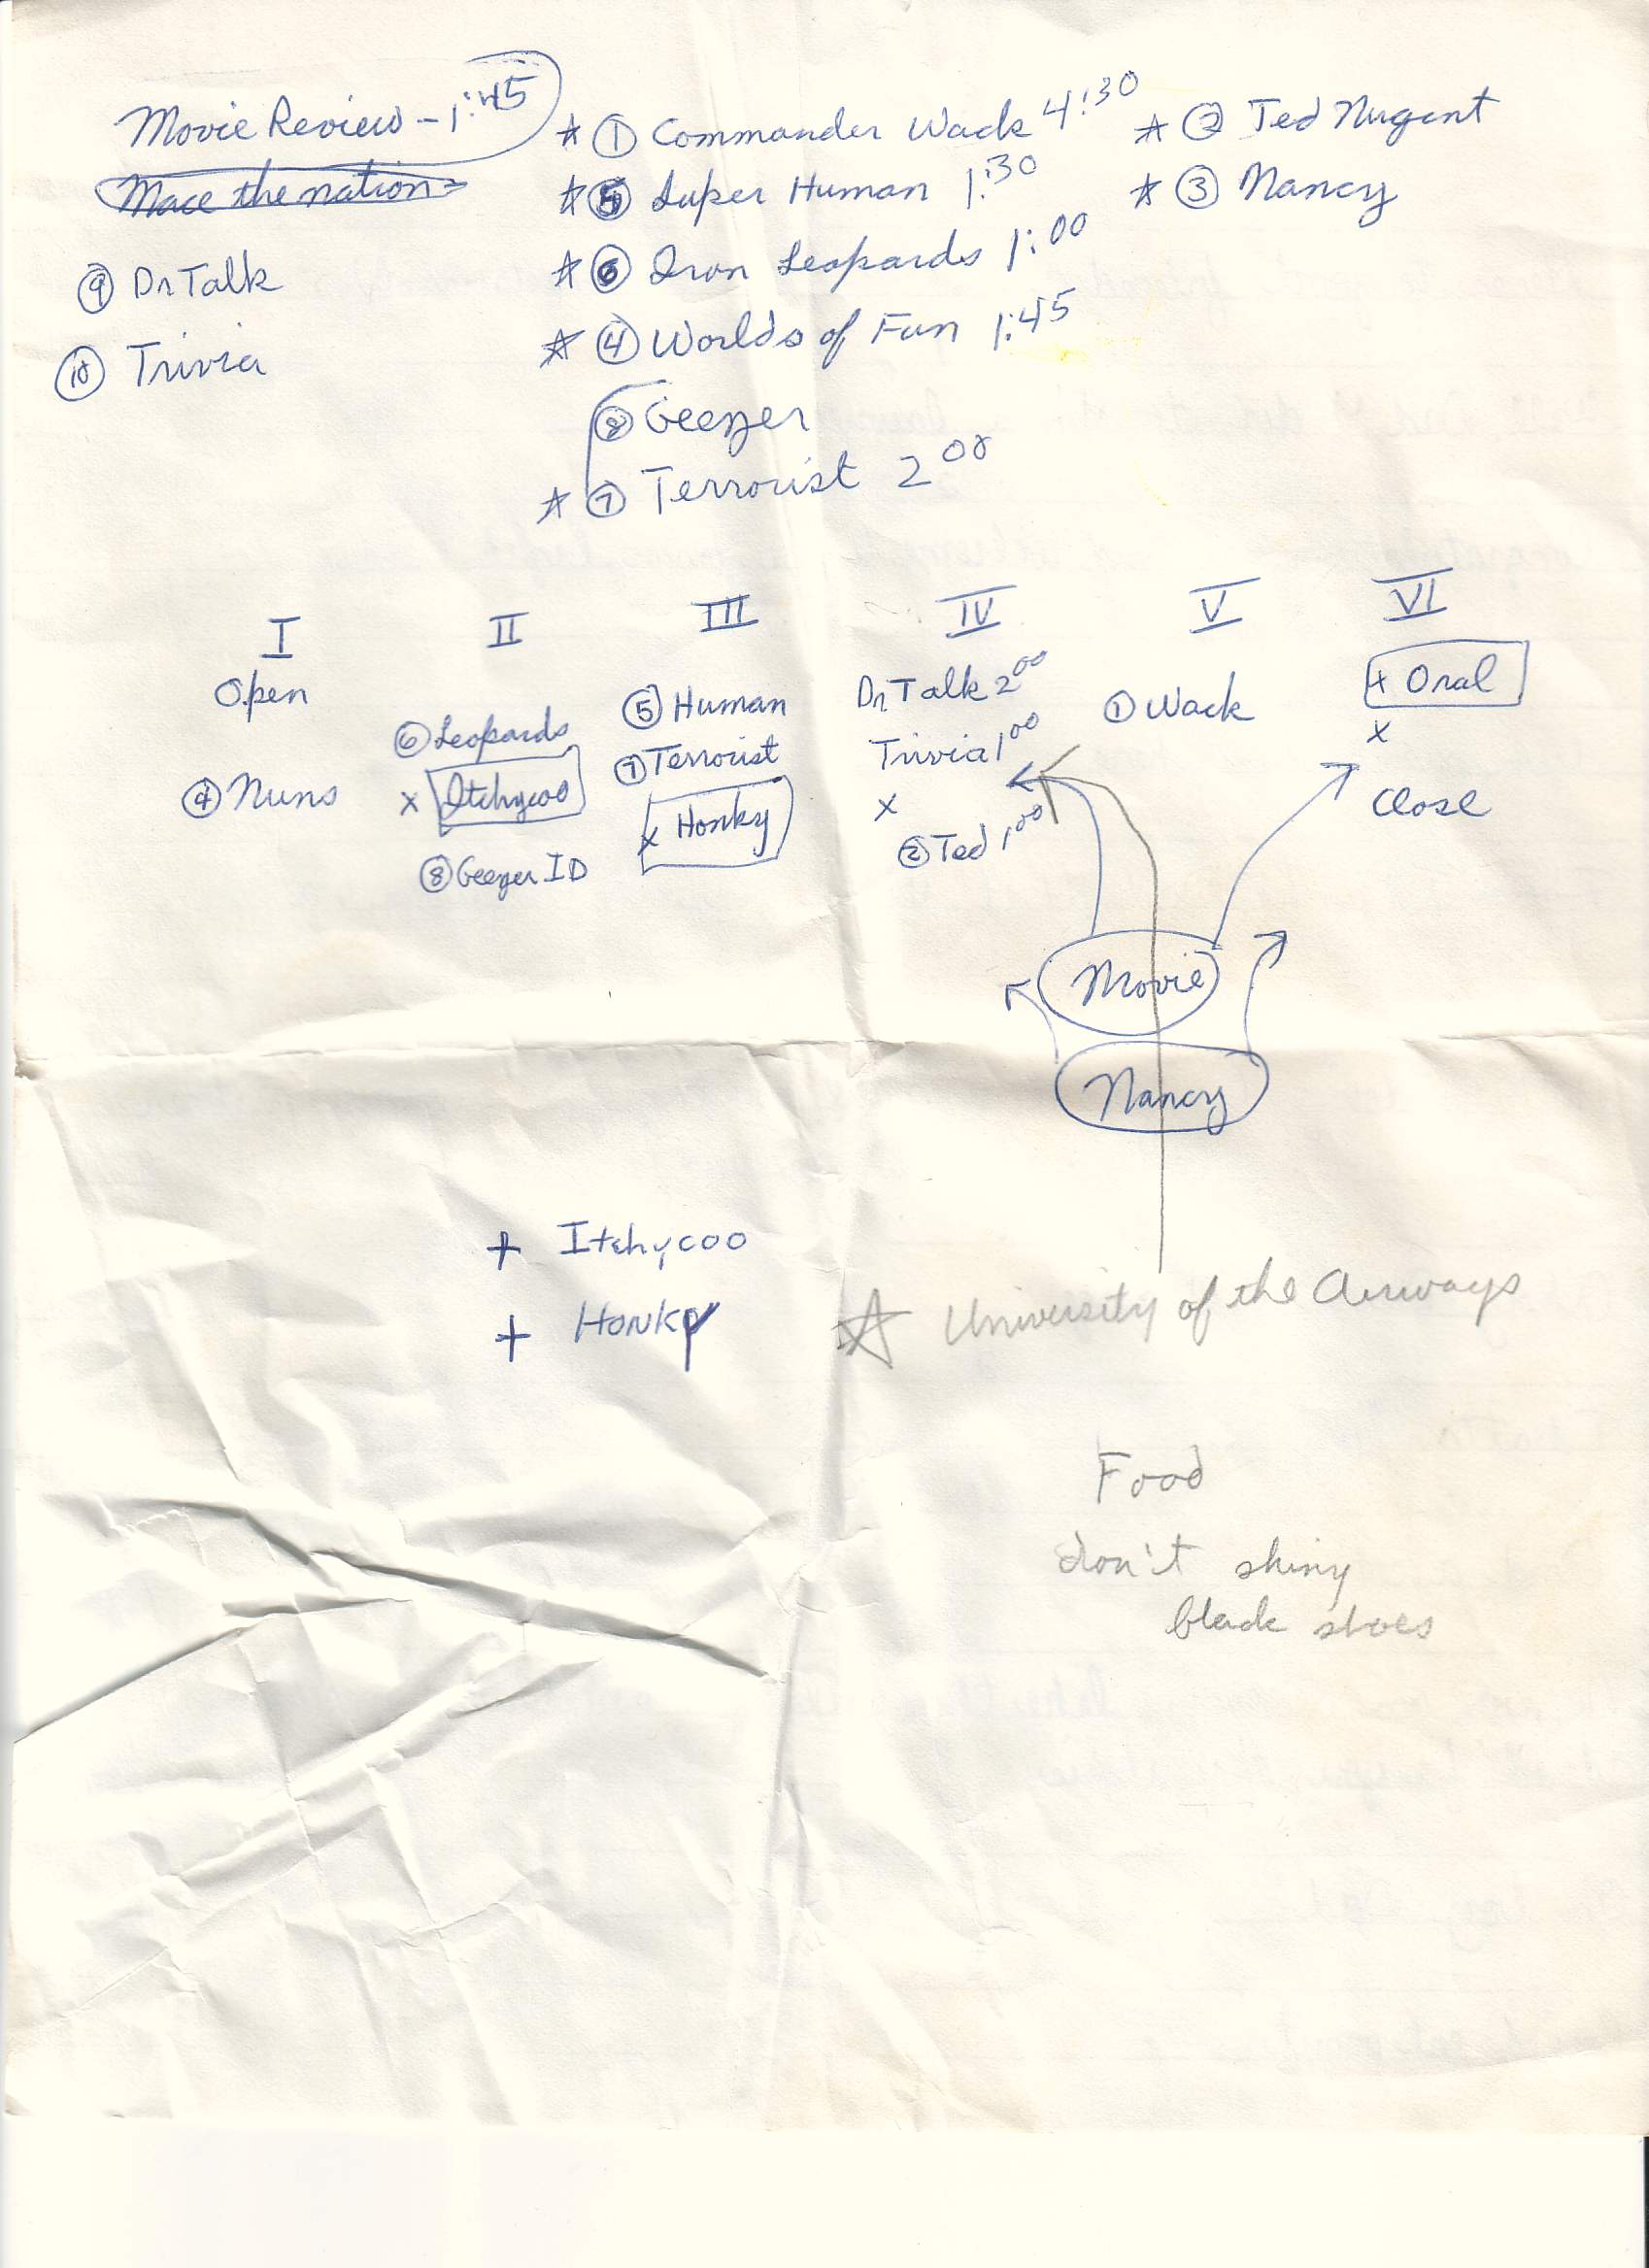 Movie Review - 1:45
Mace the nation -
⑨ Dr Talk
⑩ Trivia
☆ ① Commander Wack 4:30
☆ ⑤ Super Human 1:30
☆ ⑥ Iron Leopards 1:00
☆ ④ Worlds of Fun 1:45
⑧ Geezer
☆ ⑦ Terrorist 2 00
☆ ② Ted Nugent
☆ ③ Nancy
I
Open
④ Nuns
II
⑥ Leopards
x Itchycoo
⑧ Geezer ID
III
⑤ Human
⑦ Terrorist
x Honky
IV
Dr Talk 2 00
Trivia 1 00
x
② Ted 1 00
V
① Wack
VI
+ Oral
x
Close
Movie
Nancy
+ Itchycoo
+ Honky
☆ University of the Airways
Food
don't shiny
black shoes